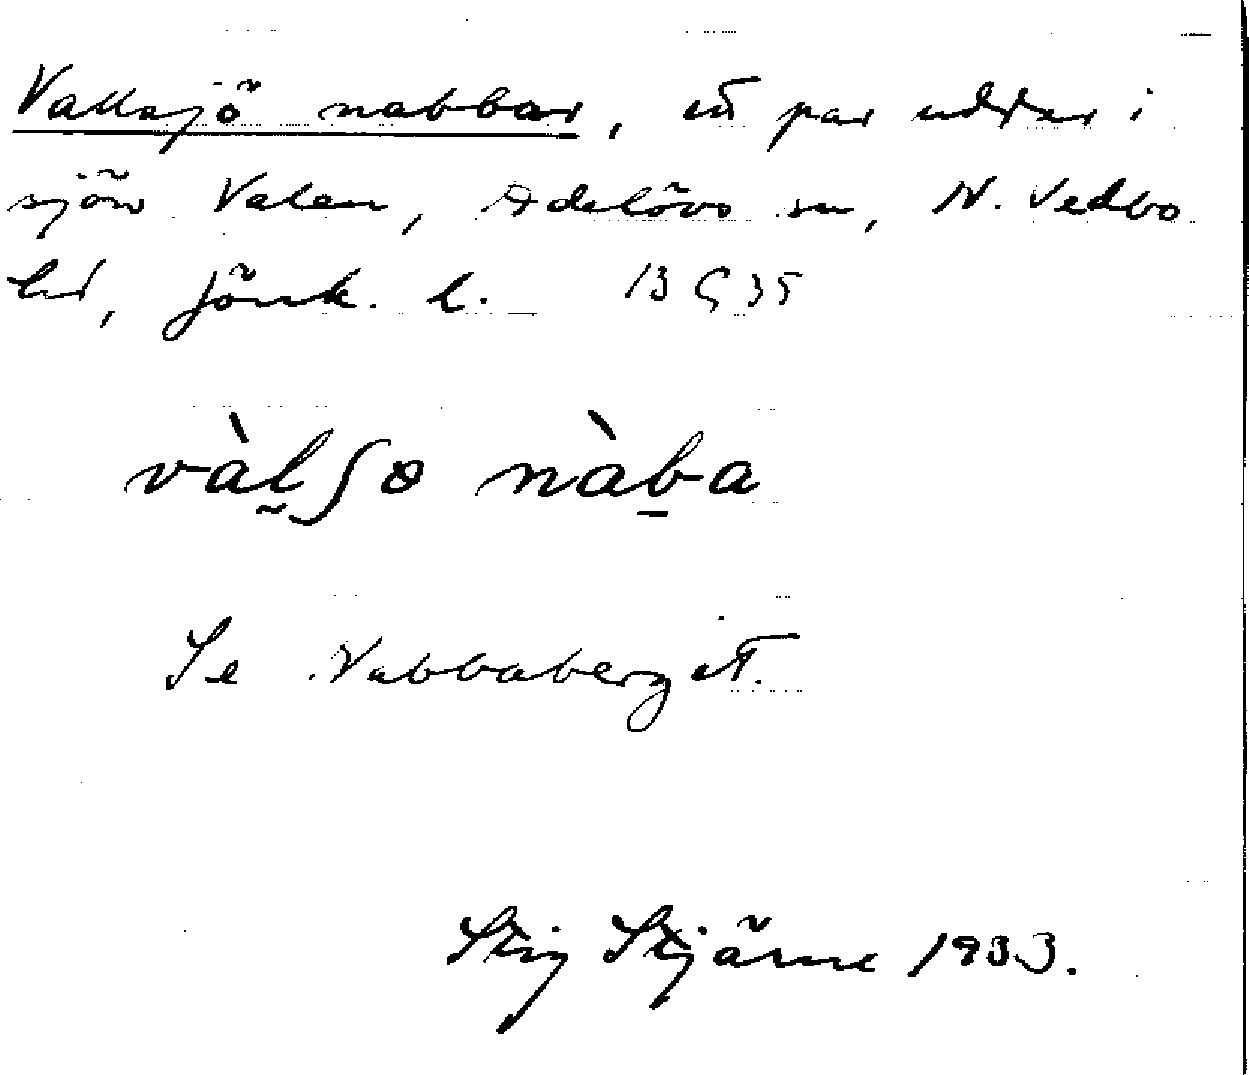 Vallsjö nabbar, ett par uddar i
sjön Valen, Adelövs sn, N. Vedbo
hd, Jönk. l. 13 G 35
vàḷʃo nàb̠a
Se Nabbaberget.
Stig Stjärne 1933.